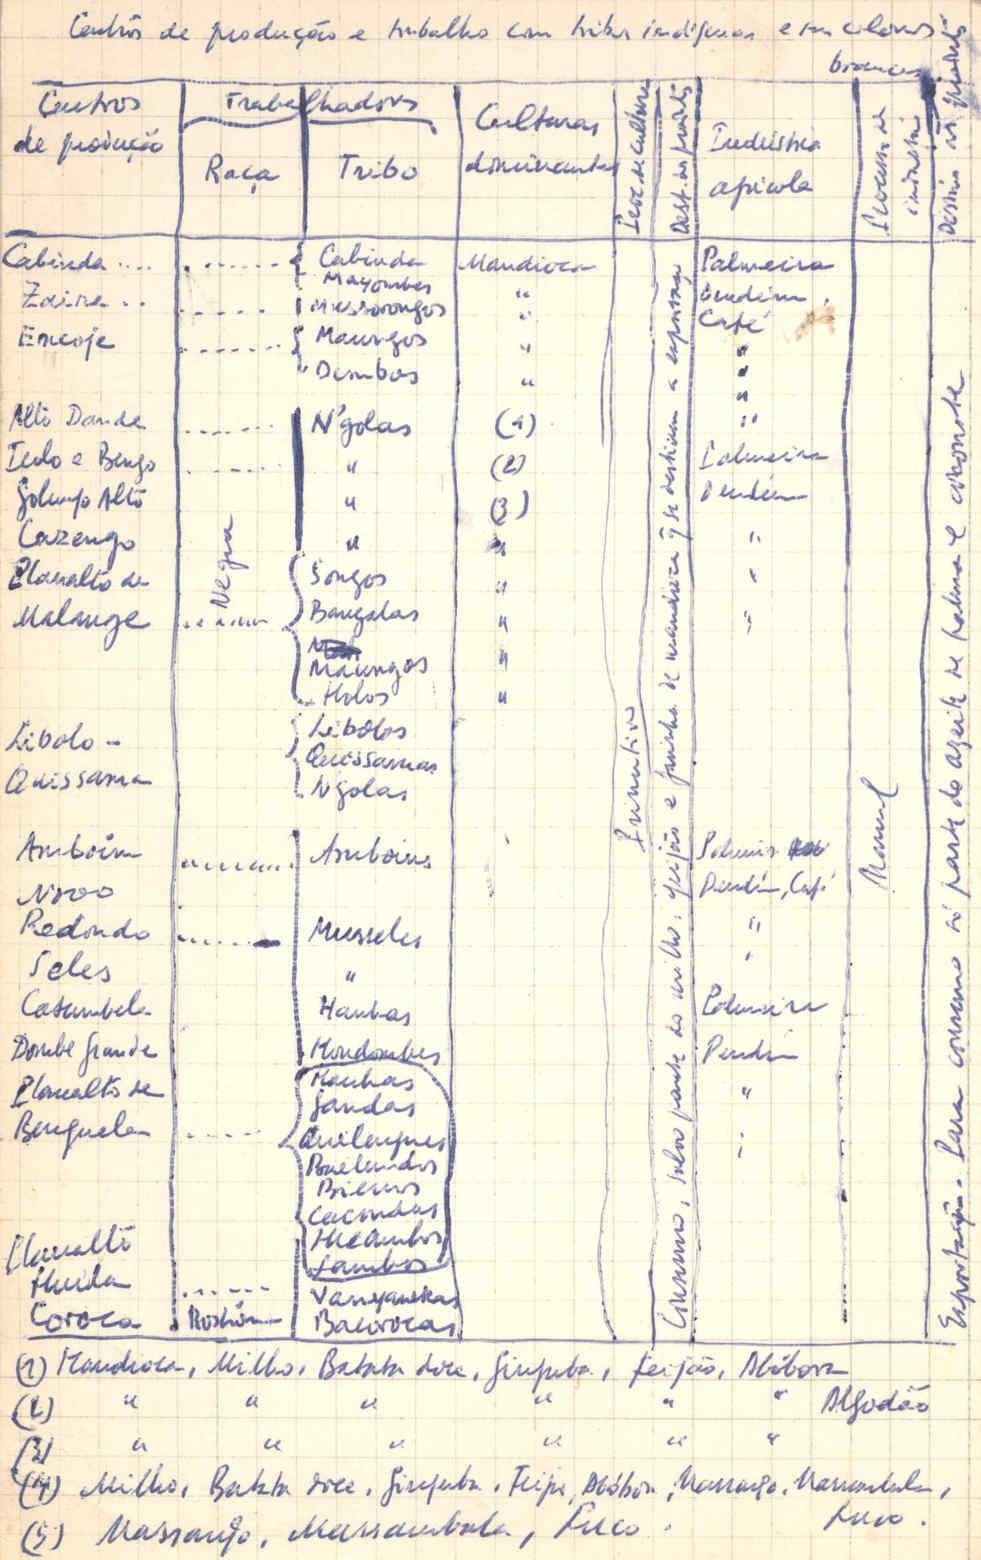 Centros de produção e trabalho com tribus indígenas e sem colonos
brancos
Centros
de produção
Trabalhadores
Raça
Tribo
Culturas
dominantes
Proc. de cultura
Dest. dos produtos
Indústria
agrícola
Processo de
indústria
Destino dos produtos
Cabinda .... ....... Cabinda Mandioca Palmeira
Mayombes " Dendém.
Zaire ... ..... Mussorongos " Café
Encoje ....... Maungos " "
Dembos " "
"
Alto Dande ...... N'golas (1) "
Icolo e Bengo ...... " (2) Palmeira
Golungo Alto " (3) Dendém
Cazengo " " "
Planalto de Songos " "
Malange ....... Bangalas " "
Maungos "
Holos "
Negra
Libolo - Libolos
Quissama Quissamas
Ngolas
Amboim ....... Amboins Palmeira
Novo Dendém, Café
Redondo ...... Musseles "
Seles " "
Catumbela Hanhas Palmeira
Dombe Grande Mondombes Dendém
Planalto de Hanhas "
Gandas
Benguela ..... Quilengues "
Bailundos
Bienos
Cacondas
Planalto Hucambos
Huila ...... Sambos
Vanyanekas
Coroca Bacorocas
Primitivo
Consumo, salvo parte do milho, feijão e farinha de mandioca q se destinam a exportação
Manual
Exportação. Para consumo só parte do azeite de palma e coconote
(1) Mandioca, Milho, Batata doce, Ginguba, feijão, Abóbora
(2) " " " " " " Algodão
(3) " " " " " "
(4) Milho, Batata doce, Ginguba, Abóbora, Massango, Massambala,
Luco.
(5) Massango, Massambala, Luco.